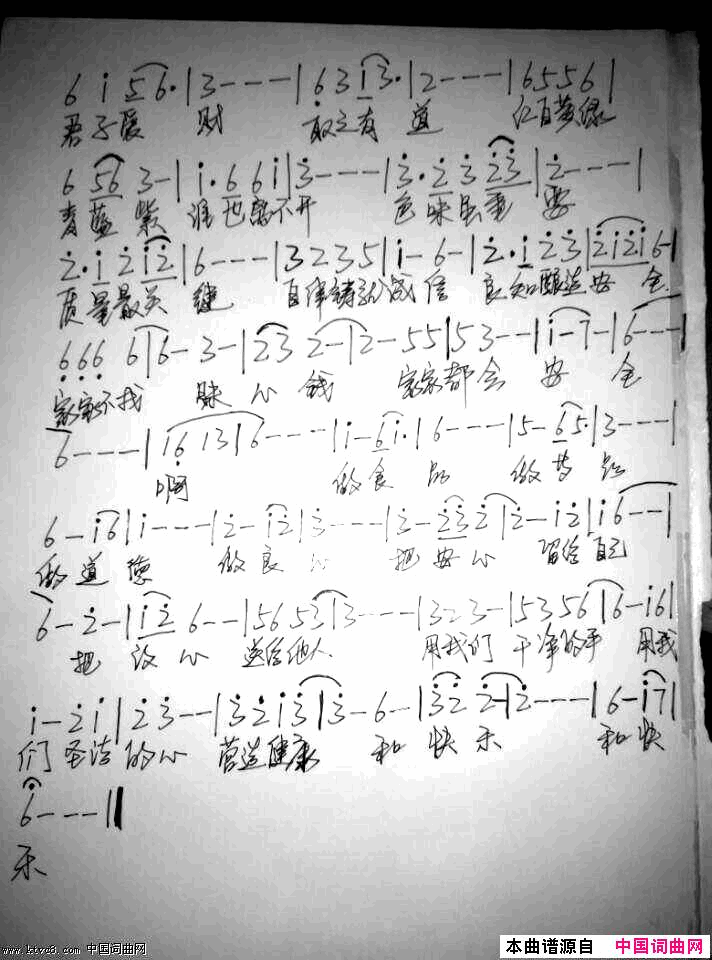 6 i 5 6· | 3 - - - - | 6 3 i 3· | 2 - - - - | 6 5 5 6 |
君子爱 财 取之有 道 红白黄绿
6 56 3 - | i· 6 6 i | 3 - - - - | 3· 2 3 23 | 2 - - - - |
青蓝 紫 谁也离不开 色味虽重 要
2· i 2 i2 | 6 - - - | 3 2 3 5 | i - 6 - | 2· i 2 3 | 2 i 2 i 6 - |
质量最关 键 自律铸就诚信 良知酿造安 全
6 6 6 6 | 6 - 3 - | 23 2 - | 2 - 5 5 | 5 3 - - | i - 7 - | 6 - - - |
家家不找 昧心 钱 家家都会 安 全
6 - - - - | i6 i3 | 6 - - - - | i - 6 i· | 6 - - - | 5 - 6 5· | 3 - - - |
啊 做食 品 做
6 - i 6 | i - - - - | 2 - i 2 | 3 - - - - | 3 - 23 2 | 2 - i 2 | i 6 - - |
做 道 德 做良 心 把安心 留给自己
6 - 2 - | i2 6 - - | 56 53 | 3 - - - - | 3 2 3 - | 53 56 | 6 - i 6 |
把 心 送给他人 用我们 干净的手 用我
i - 2 i | 2 3 - - | 3 2 i 3 | 3 - 6 - | 32 2 - | 2 - - - | 6 - i 7 |
们圣洁的心 营造健康 和 快 乐 和快
6 - - - ||
乐
www.ktvc8.com 中国词曲网
本曲谱源自 中国词曲网